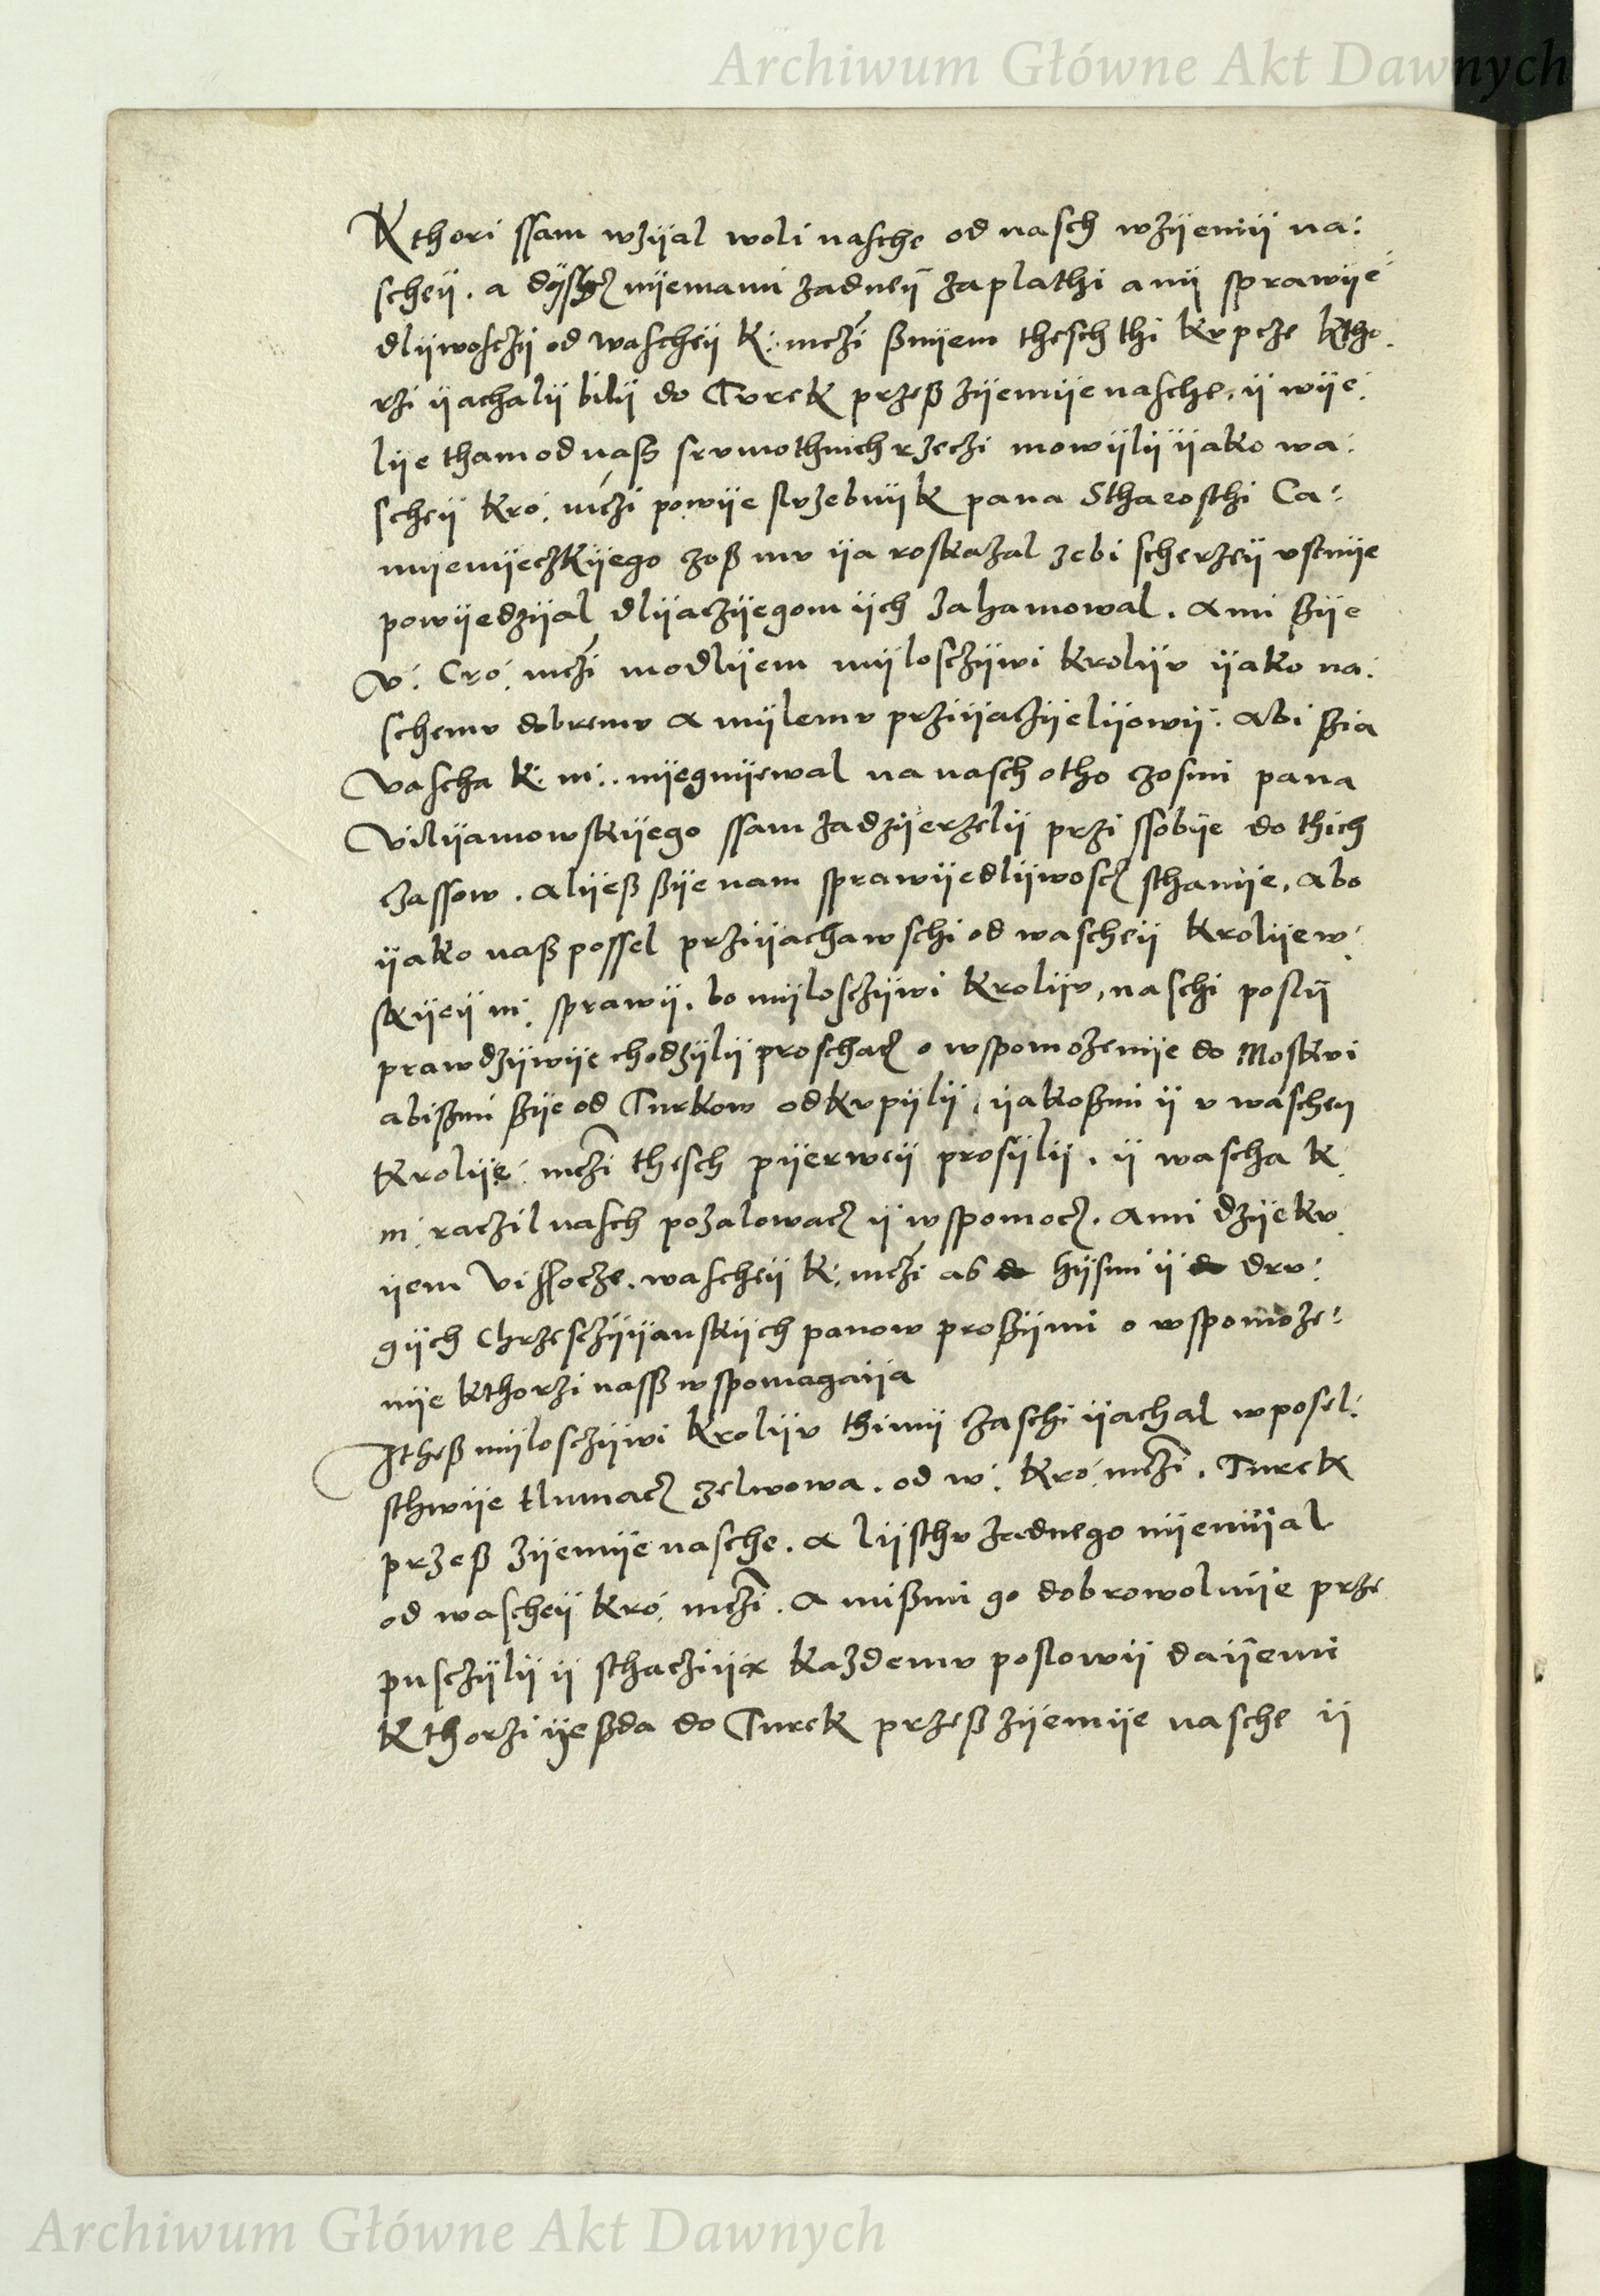 Archiwum Główne Akt Dawnych
Kthori ssam wzijal woli nasche od nasch wzijemij na:
scheij. a dijsijcz nijemami zadneij zaplathi anij sprawije
dlijwosczij od wascheij K: mczi ßnijem thesch thi kvpcze ktho.
rzi ijachalij bilij do Tvrek przeß zijemije nasche. ij wije:
lije tham od nass srvmothnich rzeczi mowijlij ijako wa:
scheij kro: mczi powije slvzebnijk pana Stharosthi Ca:
mijenijeczkijego zoß mv ija roskazal zebi scherzeij vstnije
powijedzijal dlijaczijegom ijch zahamowal. A mi ßije
V: Cro: mczi modlijem mijlosczijwi krolijv ijako na:
schemv dobremv a mijlemv prziijaczijelijowij. Abi ßia
Vascha K: m: nijegnijewal na nasch otho zosmi pana
Vilijamowskijego ssam zadzijerzelij przi ssobije do thich
czassow. alijeß ßije nam sprawijedlijwoscz sthanije, abo
ijako naß possel prziijachawschi od wascheij krolijew:
skijeij m: sprawij. bo mijlosczijwi krolijv, naschi poslij
prawdzijwije chodzijlij proschacz o wspomozenije do Moskvi
abißmi ßije od Turkow odkvpijlij, ijakoßmi ij v wascheij
krolije: mczi thesch pijerweij prosijlij. ij wascha k:
m: raczil nasch pozalowacz ij wspomocz. A mi dzijekv
ijem Vissocze. wascheij K: mczi ab hijsmi ij drv:
gijch Chrzesczijijanskijch panow proßijmi o wspomoze:
nije kthorzi nass wspomagaija
Itheß mijlosczijwi krolijv thimij czaschi ijachal wposel:
sthwije tlumacz zelwowa. od w: kro: mczi. Turek
przeß zijemije nasche. a lijsthv zednego nijemijal
od wascheij kro: mczi. A mißmi go dobrowolnije prze
pusczijlij ij sthacziija kazdemv poslowij daijemi
Kthorzi ijeßda do Turek przeß zijemije nasche ij
Archiwum Główne Akt Dawnych